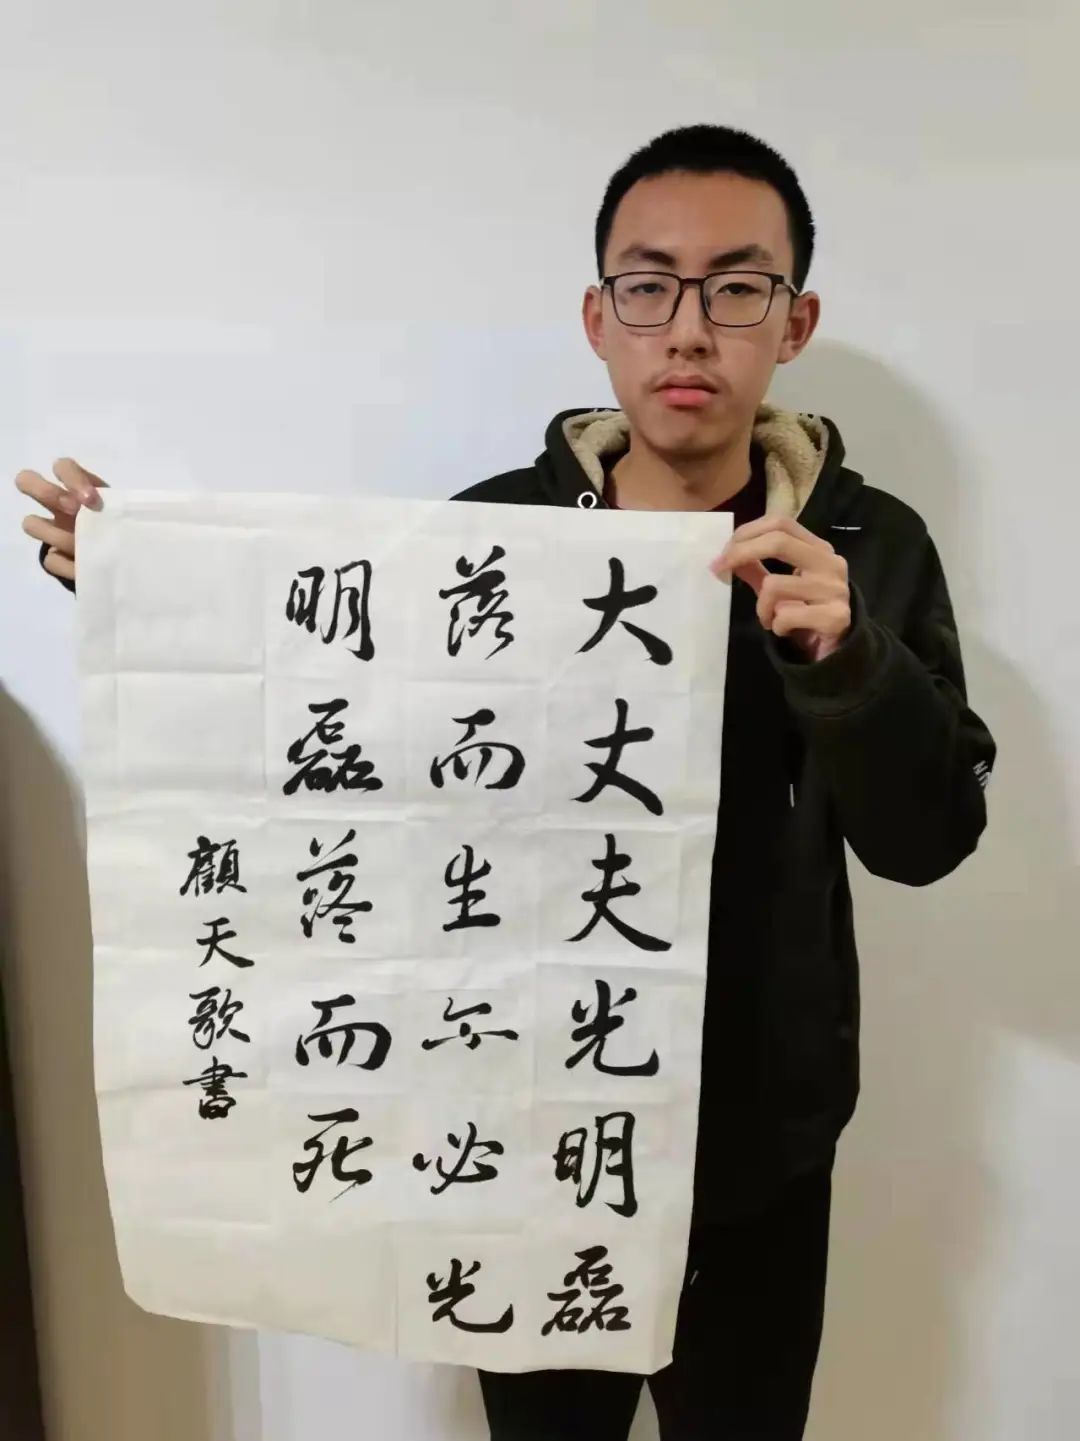 大丈夫光明磊
落而生不必光
明磊落而死
顧天歌書